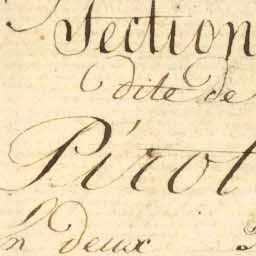 Section
dite de
Pirot
En deux